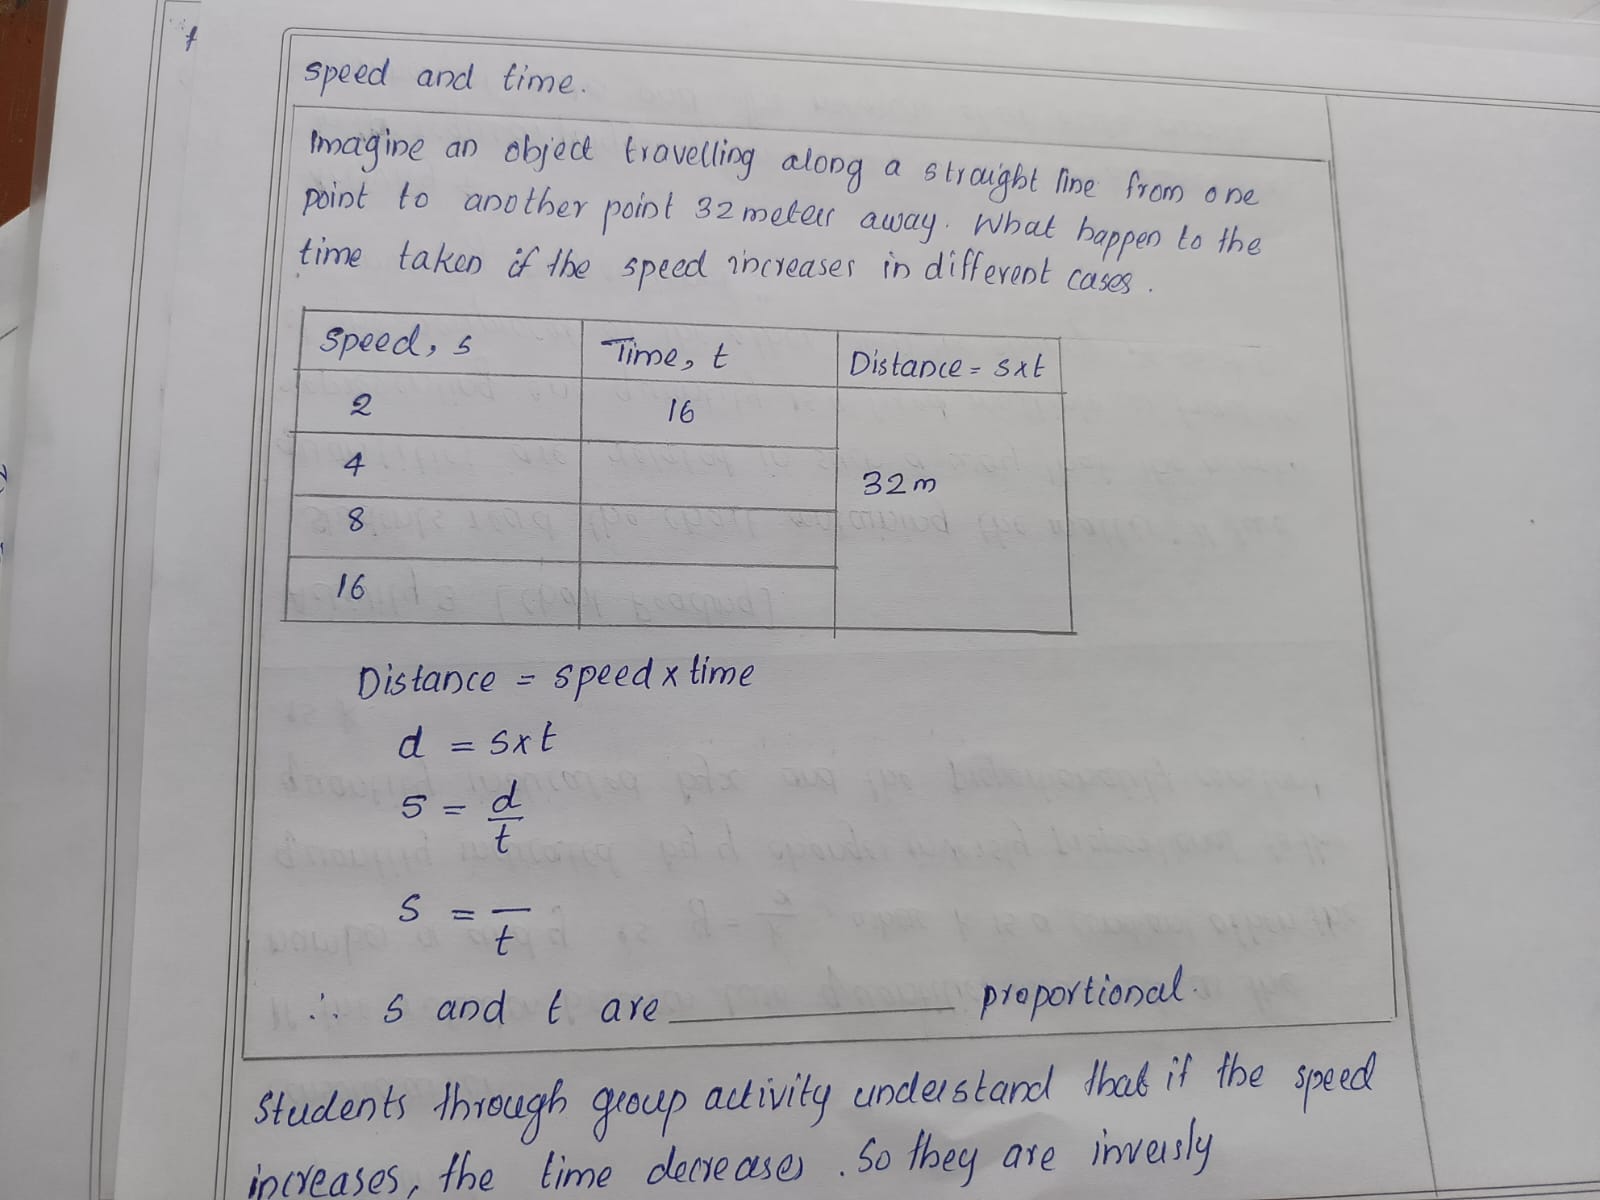 speed and time.
Imagine an object travelling along a straight line from one
point to another point 32 meters away. What happen to the
time taken if the speed increases in different cases.
Speed, s Time, t Distance = s x t
2 16
4
32m
8
16
Distance = speed x time
d = s x t
s = d/t
s = —/t
∴ s and t are ________ proportional.
Students through group activity understand that if the speed
increases, the time decreases. So they are inversly